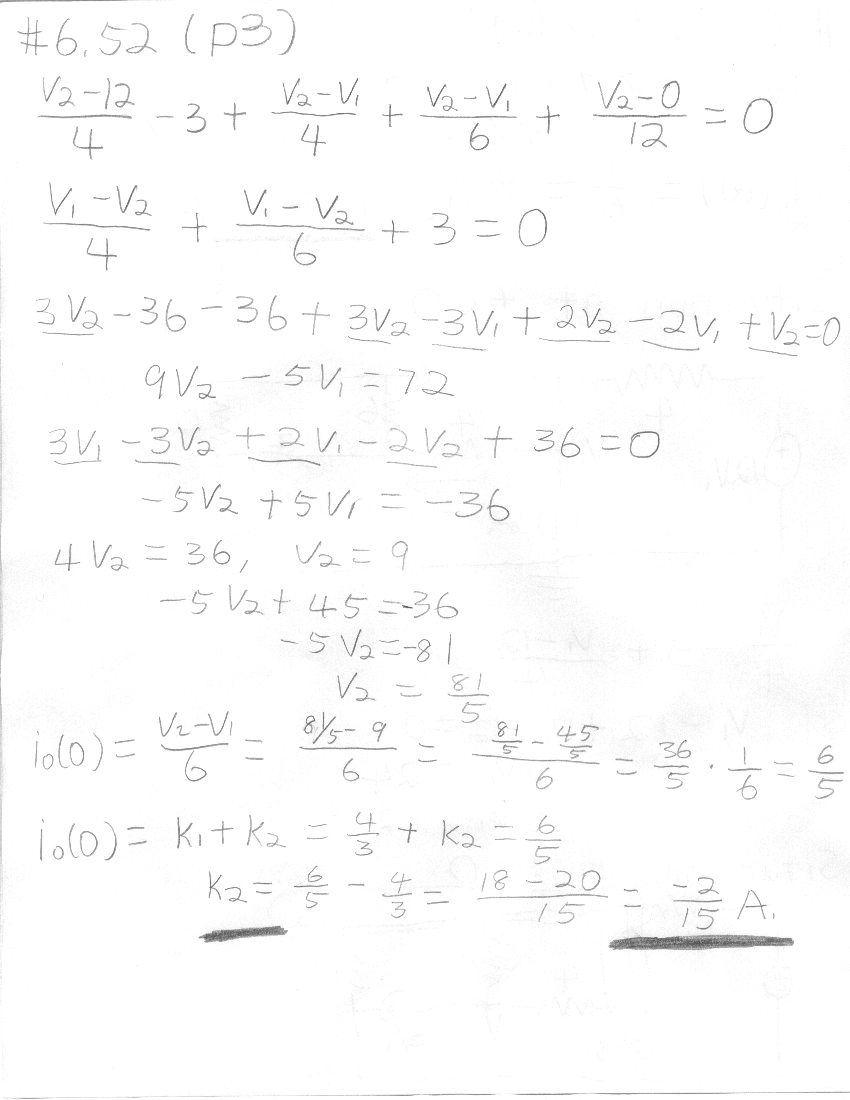 #6.52 (p3)
(V₂-12)/4 - 3 + (V₂-V₁)/4 + (V₂-V₁)/6 + (V₂-0)/12 = 0
(V₁-V₂)/4 + (V₁-V₂)/6 + 3 = 0
3V₂-36-36+3V₂-3V₁+2V₂-2V₁+V₂=0
9V₂ - 5V₁ = 72
3V₁ - 3V₂ + 2V₁ - 2V₂ + 36 = 0
-5V₂ + 5V₁ = -36
4V₂ = 36, V₂ = 9
-5V₂ + 45 = -36
-5V₂ = -81
V₂ = 81/5
i₀(0) = (V₂-V₁)/6 = (81/5 - 9)/6 = (81/5 - 45/5)/6 = 36/5 · 1/6 = 6/5
i₀(0) = K₁ + K₂ = 4/3 + K₂ = 6/5
K₂ = 6/5 - 4/3 = (18-20)/15 = -2/15 A.